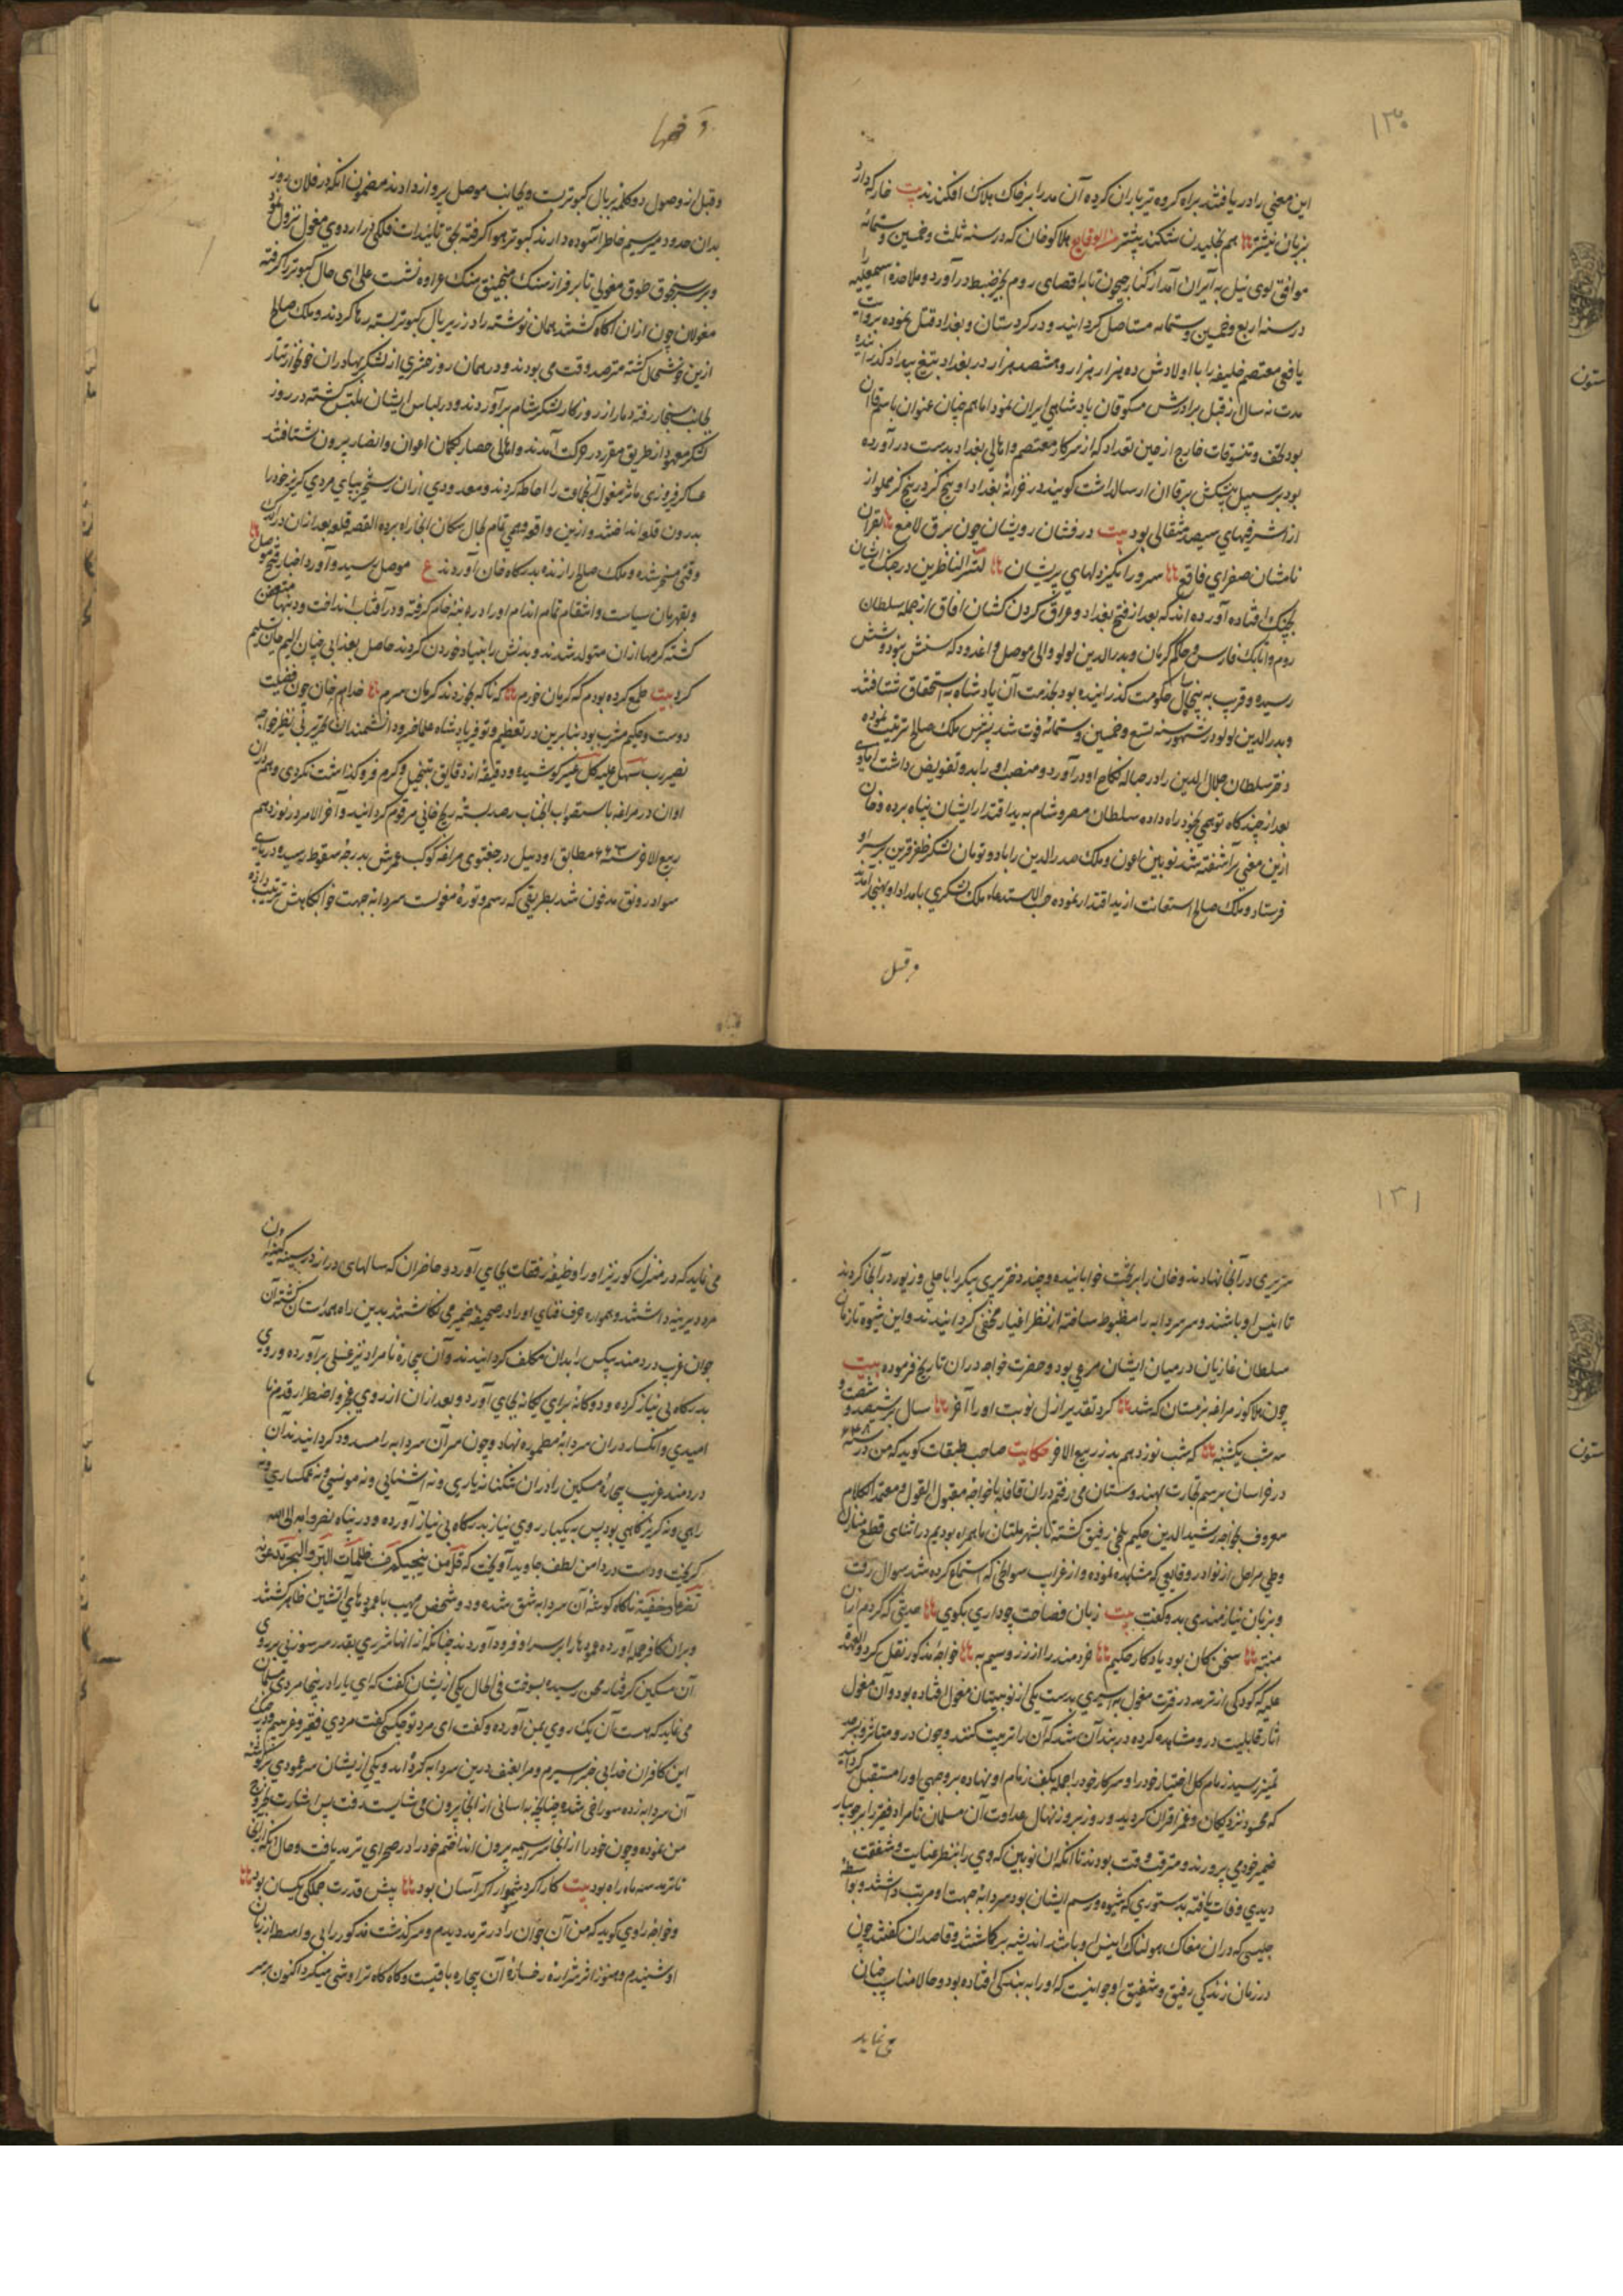 ۱۳۰
این معنی را دریافتند براه گروه تیرباران کرده آن مدبر را بر خاک هلاک افکندند بیت خار که دارد
بزبان نیشتر هم بخلیدن شکنند پیشتر هلاکو خان که در سنه ثلث و خمسین و ستمائه
موافق لوی ئیل به ایران آمد از کنار جیحون تا باقصای روم بحیز ضبط در آورد و ملاحده اسمعیلیه را
در سنه اربع و خمسین و ستمایه مستاصل کردانید و در کردستان و بغداد قتل نموده بروایت
یافعی معتصم خلیفه را با اولادش ده هزار هزار و هشصد هزار در بغداد بتیغ بیداد گذرانیده
مدت نه سال از قبل برادرش منکوقاآن پادشاهی ایران نمود اما هم چنان عنوان باسم قاآن
بود تحف و تنسوقات خارج از حین تعداد که از سرکار معتصم و اهالی بغداد بدست در آورده
بود بر سبیل پیشکش برقاآن ارسال داشت گویند در خزانهٔ بغداد او پنج کز در پنج کز مملو از
از اشرفیهای سیصد مثقالی بود بیت درفشان رویشان چون برق لامع بقرآن
نامشان صفرای فاقع سرور انگیز دلهای پریشان لتسر الناظرین در جنگ ایشان
بچنک افتاده آورده اند که بعد از فتح بغداد و عراق گردن کشان افاق از جمله سلطان
روم و اتابک فارس و حاکم کرمان و بدر الدین لولو والی موصل و اغدود که سنش بنود و شش
رسیده و قریب به پنجاه سال حکومت گذرانیده بود بخدمت آن پادشاه به استحقاق شتافتند
و بدر الدین لولو در شهور سنه تسع و خمسین و ستمائه فوت شد پسرش ملک صالح تربیت نموده
دختر سلطان جلال الدین را در حباله نکاح او در آورد و منصب او را بدو تفویض داشت اما وی
بعد از چند گاه توهمی بخود راه داده سلطان مصر و شام به بیدا قتدار ایشان پناه برده و خان
ازین معنی بر آشفته شد نویین اعون و ملک صدر الدین را با دو تومان لشکر ظفر قرین بر سر او
فرستاد و ملک صالح استعانت از بیداقتدار نموده حسب الاستدعاء ملک لشکری بامداد او بسنجار آمد
و قبل
و قبل از وصول دو کلمه بر بال کبوتر بست و بجانب موصل پرواز دادند مضمون انکه در فلان روز
بدان حدود میرسیم خاطر آسوده دارند کبوتر هوا گرفته بحق تائیدات فلکی در اردوی مغول نزول نمود
و بر سر سنجوق طوق مغولی تا بر فراز سنک منجنیق منک عراوه نشست علی ای حال کبوتر را گرفته
مغولان چون ازان آگاه گشتند همان نوشته را در زیر بال کبوتر بسته رها کردند و ملک صالح
ازین خوشحال گشته مترصد وقت می بودند و در همان روز حشری از لشکر بهادران خونخوار تتار
بجانب سنجار رفته دمار از روزکار لشکر شام بر آوردند و در لباس ایشان ملتبس گشته در روز
لشکر معهود از طریق مقرر در حرکت آمدند و اهالی حصار بگمان اعوان و انصار بیرون شتافتند
عساکر فیروزی ماثر مغول آن جماعت را احاطه کردند و معدودی ازان رستخیز بپای مردی گریز خود را
بدرون قلعه انداختند و ازین واقعه وهمی تمام بحال سکان انجا راه برده القصه قلعه بعد ازان در اندک
وقتی مسخر شده و ملک صالح را زنده بدرگاه خان آوردند ع موصل رسید و آورد اخبار فتح موصل
و بقهرمان سیاست و انتقام تمام اندام او را در پنبه خام گرفته و در آفتاب انداخت و دنبها متعفن
گشته کرمها ازان متولد شدند و بدنش را بنیاد خوردن کردند حاصل بعذابی چنان الیم جان تسلیم
کرد بیت طمع کرده بودم که کرمان خورم که ناگه بخوردند کرمان سرم خدایم خان چون فضیلت
دوست و حکیم مشرب بود بنابرین در تعظیم و توقیر پادشاه علما خرد و دانشمندان نحریر بی نظیر خواجه
نصیر رب سهل علیه کل عسیر کوشیده و دقیقهٔ از دقایق تبجیل و کرم فرو گذاشت نکردی و هم دران
اوان در مراغه باستصواب انجناب رصد بسته زیج خانی مرقوم گردانید و آخر الامر در نوزدهم
ربیع الاخر سنه ۶۶۳ مطابق اودئیل در جغتوی مراغه کوکب عمرش بدرجهٔ سقوط رسیده در پای
سواد رونق مدفون شد بطریقی که رسم و تورهٔ مغولست سردابه جهت خوابگاهش ترتیب داده
۱۳۱
سریری در آنجا نهادند و خان را بر تخت خوابانیده و چند دختر پری پیکر را با حلی و زیور در آنجا کردند
تا انیس او باشند و سر سردابه را مضبوط ساخته از نظر اغیار مخفی گردانیدند و این شیوه تا زمان
سلطان غازان در میان ایشان مرعی بود و حضرت خواجه در ان تاریخ فرموده بیت
چون هلاکو ز مراغه بزمستان که شد کرد تقدیر ازل نوبت او را آخر سال بر ششصد و شصت و
سه شب یکشنبه که شب نوزدهم بد ز ربیع الاخر حکایت صاحب طبقات گوید که من در سنه ۶۴۸
در خراسان برسم تجارت بهندوستان می رفتم در ان قافله با خواجه مقبول القول و معتمد الکلام
معروف بخواجه رشید الدین حکیم بلخی رفیق گشته تا بشهر ملتان با همراه بودیم در اثنای قطع منازل
و طی مراحل از نوادر وقایعی که مشاهده نموده و از غرایب سوانحی که استماع کرده شد سوال رفت
و بزبان نیازمندی بدو گفت بیت زبان فصاحت چو داری بگوی حدیثی که گردم ازان
منتبه سخن کان بود یادگار حکیم خردمند را از زر و سیم به خواجهٔ مذکور نقل کرد و العهدة
علیه که کودکی از ترمد در فترت مغول به اسیری بدست یکی از نویینان مغول افتاده بود و آن مغول
آثار قابلیت درو مشاهده کرده در بند آن شد که آن را تربیت کنند و چون در و متاثر و بحد
تمیز رسید زمام کل اختیار خود را و سرکار خود را جمله بکف زمام او نهاده بروجهی او را مستقبل گردانید
که محسود نزدیکان و غمز اقران گردید و روز بروز نهال عداوت آن مسلمان نامراد فقیر را بر جویبار
ضمیر خود می پرورند و مترقب وقت بودند تا انکه ان نویین که وی را بنظر عنایت و شفقت
دیدی وفات یافته بدستوری که شیوه و رسم ایشان بود سردابهٔ جهت او مرتب داشتند و بواسطهٔ
جلیسی که در ان مغاک هولناک انیس او باشد اندیشه بر گماشتند و قاصدان گفتند چون
در زمان زندگی رفیق و شفیق او جوانیست که او را به بندگی افتاده بود و حالا مناسب چنان
می نماید
می نماید که در منزل گور نیز او را وظیفهٔ رفقات بجای آورد و حاضران که سالهای دراز در سینه کینهٔ ان
مرد دیرینه داشتند و همواره حرف فنای او را در صحیفه ضمیر می نگاشتند بدین راه همداستان گشته آن
جوان غریب دردمند بیکس را بدان مکلف گردانیدند و آن بیچاره نامراد نیز غسلی بر آورده و روی
بدرگاه بی نیاز کرده و دوگانه برای یگانه بجای آورد و بعد ازان از روی عجز و اضطرار قدم نا
امیدی و انکسار دران سردابهٔ مطموره نهاد و چون سر آن سردابه را مسدود گردانیدند آن
دردمند غریب بیچارهٔ مسکین را در ان تنگنا نه یاری و نه آشنایی و نه مونسی و نه غمگساری و نه
راهی و نه گریزگاهی بود پس به یکبار روی نیاز بدرگاه بی نیاز آورده و در پناه نفروا به الی الله
گریخت و دست در دامن لطف جاوید آویخت که قل من ینجیکم من ظلمات البر و البحر تدعونه
تضرعا و خفیة ناگاه گوشهٔ آن سردابه شق شده و دو شخص مهیب با عمودهای آتشین ظاهر گشتند
و بر ان کافر حمله آورده عمودها را بر سر او فرود آوردند چنانکه از انها شرری بقدر سر سوزنی بر روی
آن مسکین گرفتار محن رسیده بسوخت فی الحال یکی از یشان گفت که ای یار ا در ینجا مردی مسلمان
می نماید که هست آن یک روی بمن آورده و گفت ای مرد تو چکسی گفت مردی فقیر و غریبم و در چنگ
این کافران خدایی خبر اسیرم و مرا بعنف درین سردابه کرده اند و یکی از یشان سر عمودی بر گوشهٔ
آن سردابه زده سوراخی شد چنانچه به اسانی از انجا بیرون می شایست رفت پس اشارت بخروج
من نموده و چون خود را از انجا سراسیمه بیرون انداختم خود را در صحرای ترمد یافت و حال انکه از انجا
تا ترمد سه ماه راه بود بیت کار اگر دشوار اگر آسان بود پیش قدرت جملگی یکسان بود
و خواجه راوی گوید که من آن جوان را در ترمد دیدم و سرگذشت مذکور را بی واسطه از زبان
او شنیدم و هنوز اثر شرارهٔ رخسارهٔ آن بیچاره باقیست و گاه گاه تراوشی میکرد اکنون بر سر